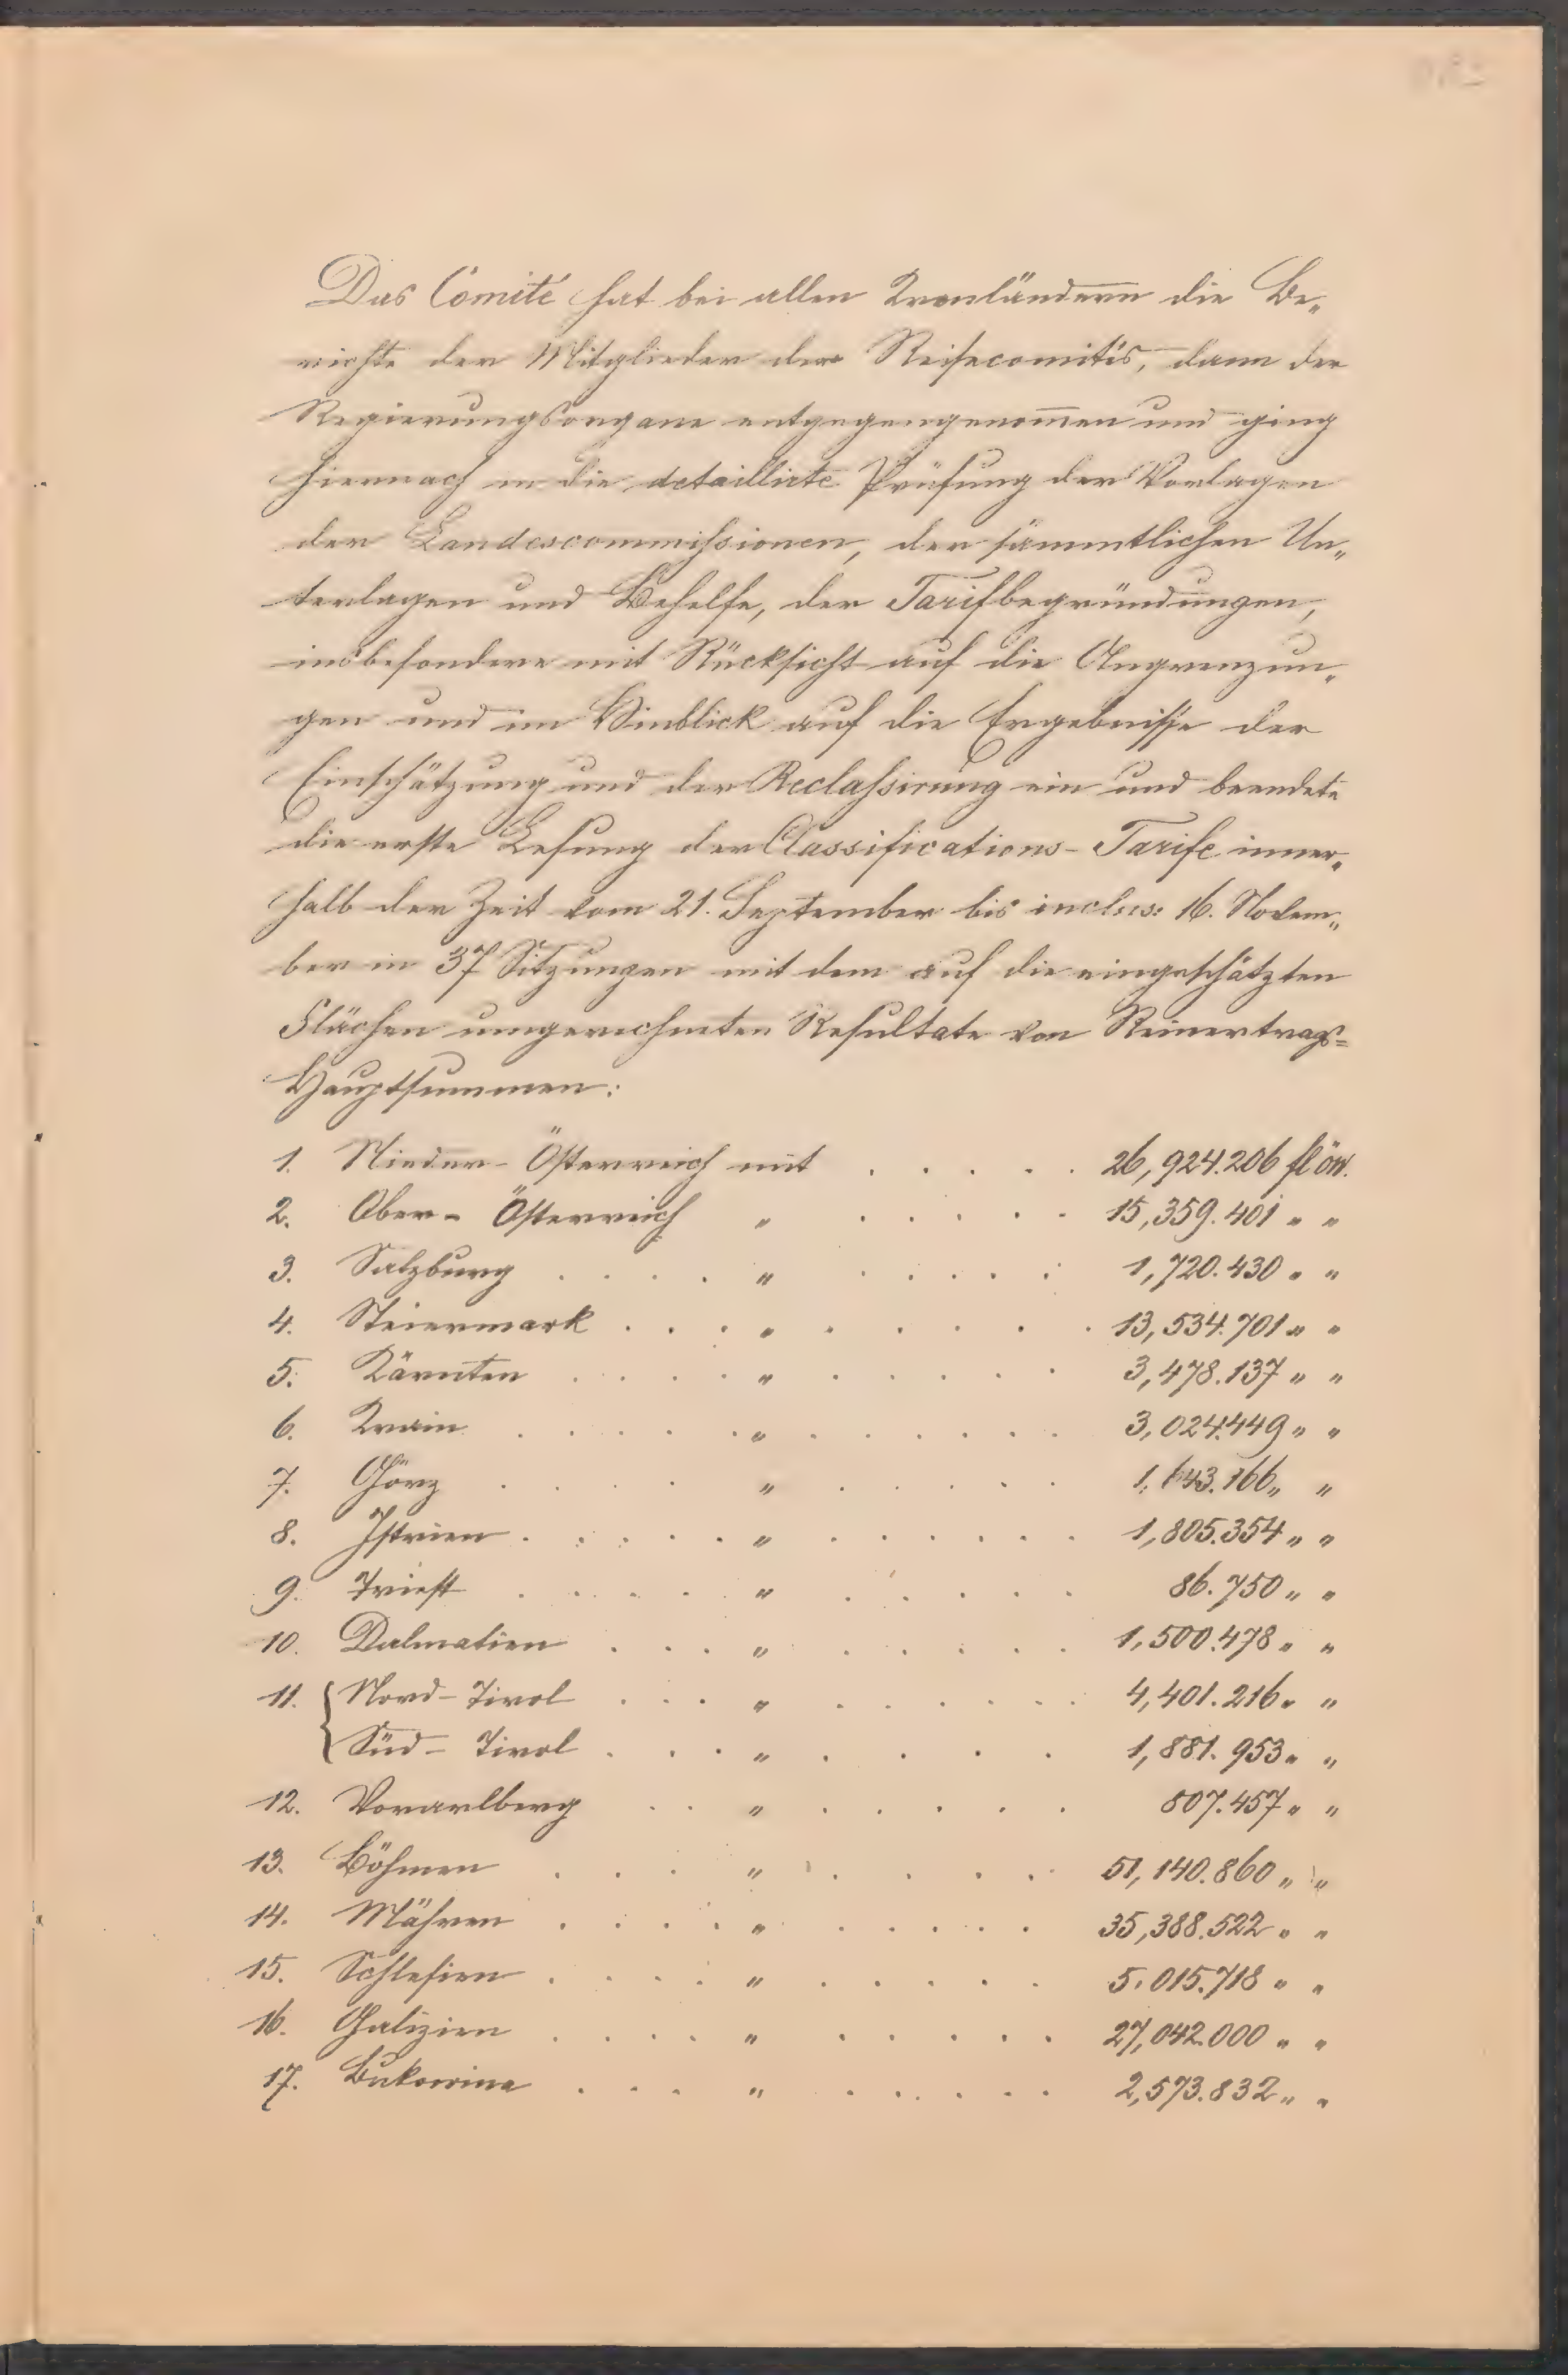 Das Comité hat bei allen Kronländern die Be„
richte der Mitglieder der Reisecomités, dann der
Regierungsorgane entgegengenom̅en und ging
hiernach in die detaillirte Prüfung der Vorlagen
der Landescommissionen, der sämmtlichen Un„
terlagen und Behelfe, der Tarifbegründungen,
insbesondere mit Rücksicht auf die Angrenzun„
gen und im Hinblick auf die Ergebnisse der
Einschätzung und der Reclassirung ein und beendete
die erste Lesung der Classifications-Tarife inner„
halb der Zeit vom 21. September bis inclus: 16. Novem„
ber in 37 Sitzungen mit dem auf die eingeschätzten
Flächen umgerechneten Resultate von Reinertrags=
Hauptsummen:
1. Nieder-Österreich mit . . . . . 26,924.206 fl öw.
2. Ober-Österreich „ . . . . . 15,359.401 „ „
3. Salzburg . . . . „ . . . . . 1,720.430 „ „
4. Steiermark . . . „ . . . . . 13,534.701 „ „
5. Kärnten . . . . „ . . . . . 3,478.137 „ „
6. Krain . . . . . „ . . . . . . 3,024.449 „ „
7. Görz . . . . „ . . . . . 1,643.166 „ „
8. Istrien . . . . . „ . . . . . . 1,805.354 „ „
9. Triest . . . . . „ . . . . . 86.750 „ „
10. Dalmatien . . . „ . . . . . 1,500.478 „ „
11. { Nord-Tirol . . . „ . . . . . . 4,401.216 „ „
Süd-Tirol . . . „ . . . . 1,881.953 „ „
12. Vorarlberg . . „ . . . . . 807.457 „ „
13. Böhmen . . . „ . . . . 51,140.860 „ „
14. Mähren . . . . „ . . . . . 35,388.522 „ „
15. Schlesien . . . . „ . . . . . 5,015.718 „ „
16. Galizien . . . . „ . . . . . 27,042.000 „ „
17. Bukowina . . . „ . . . . . 2,573.832 „ „